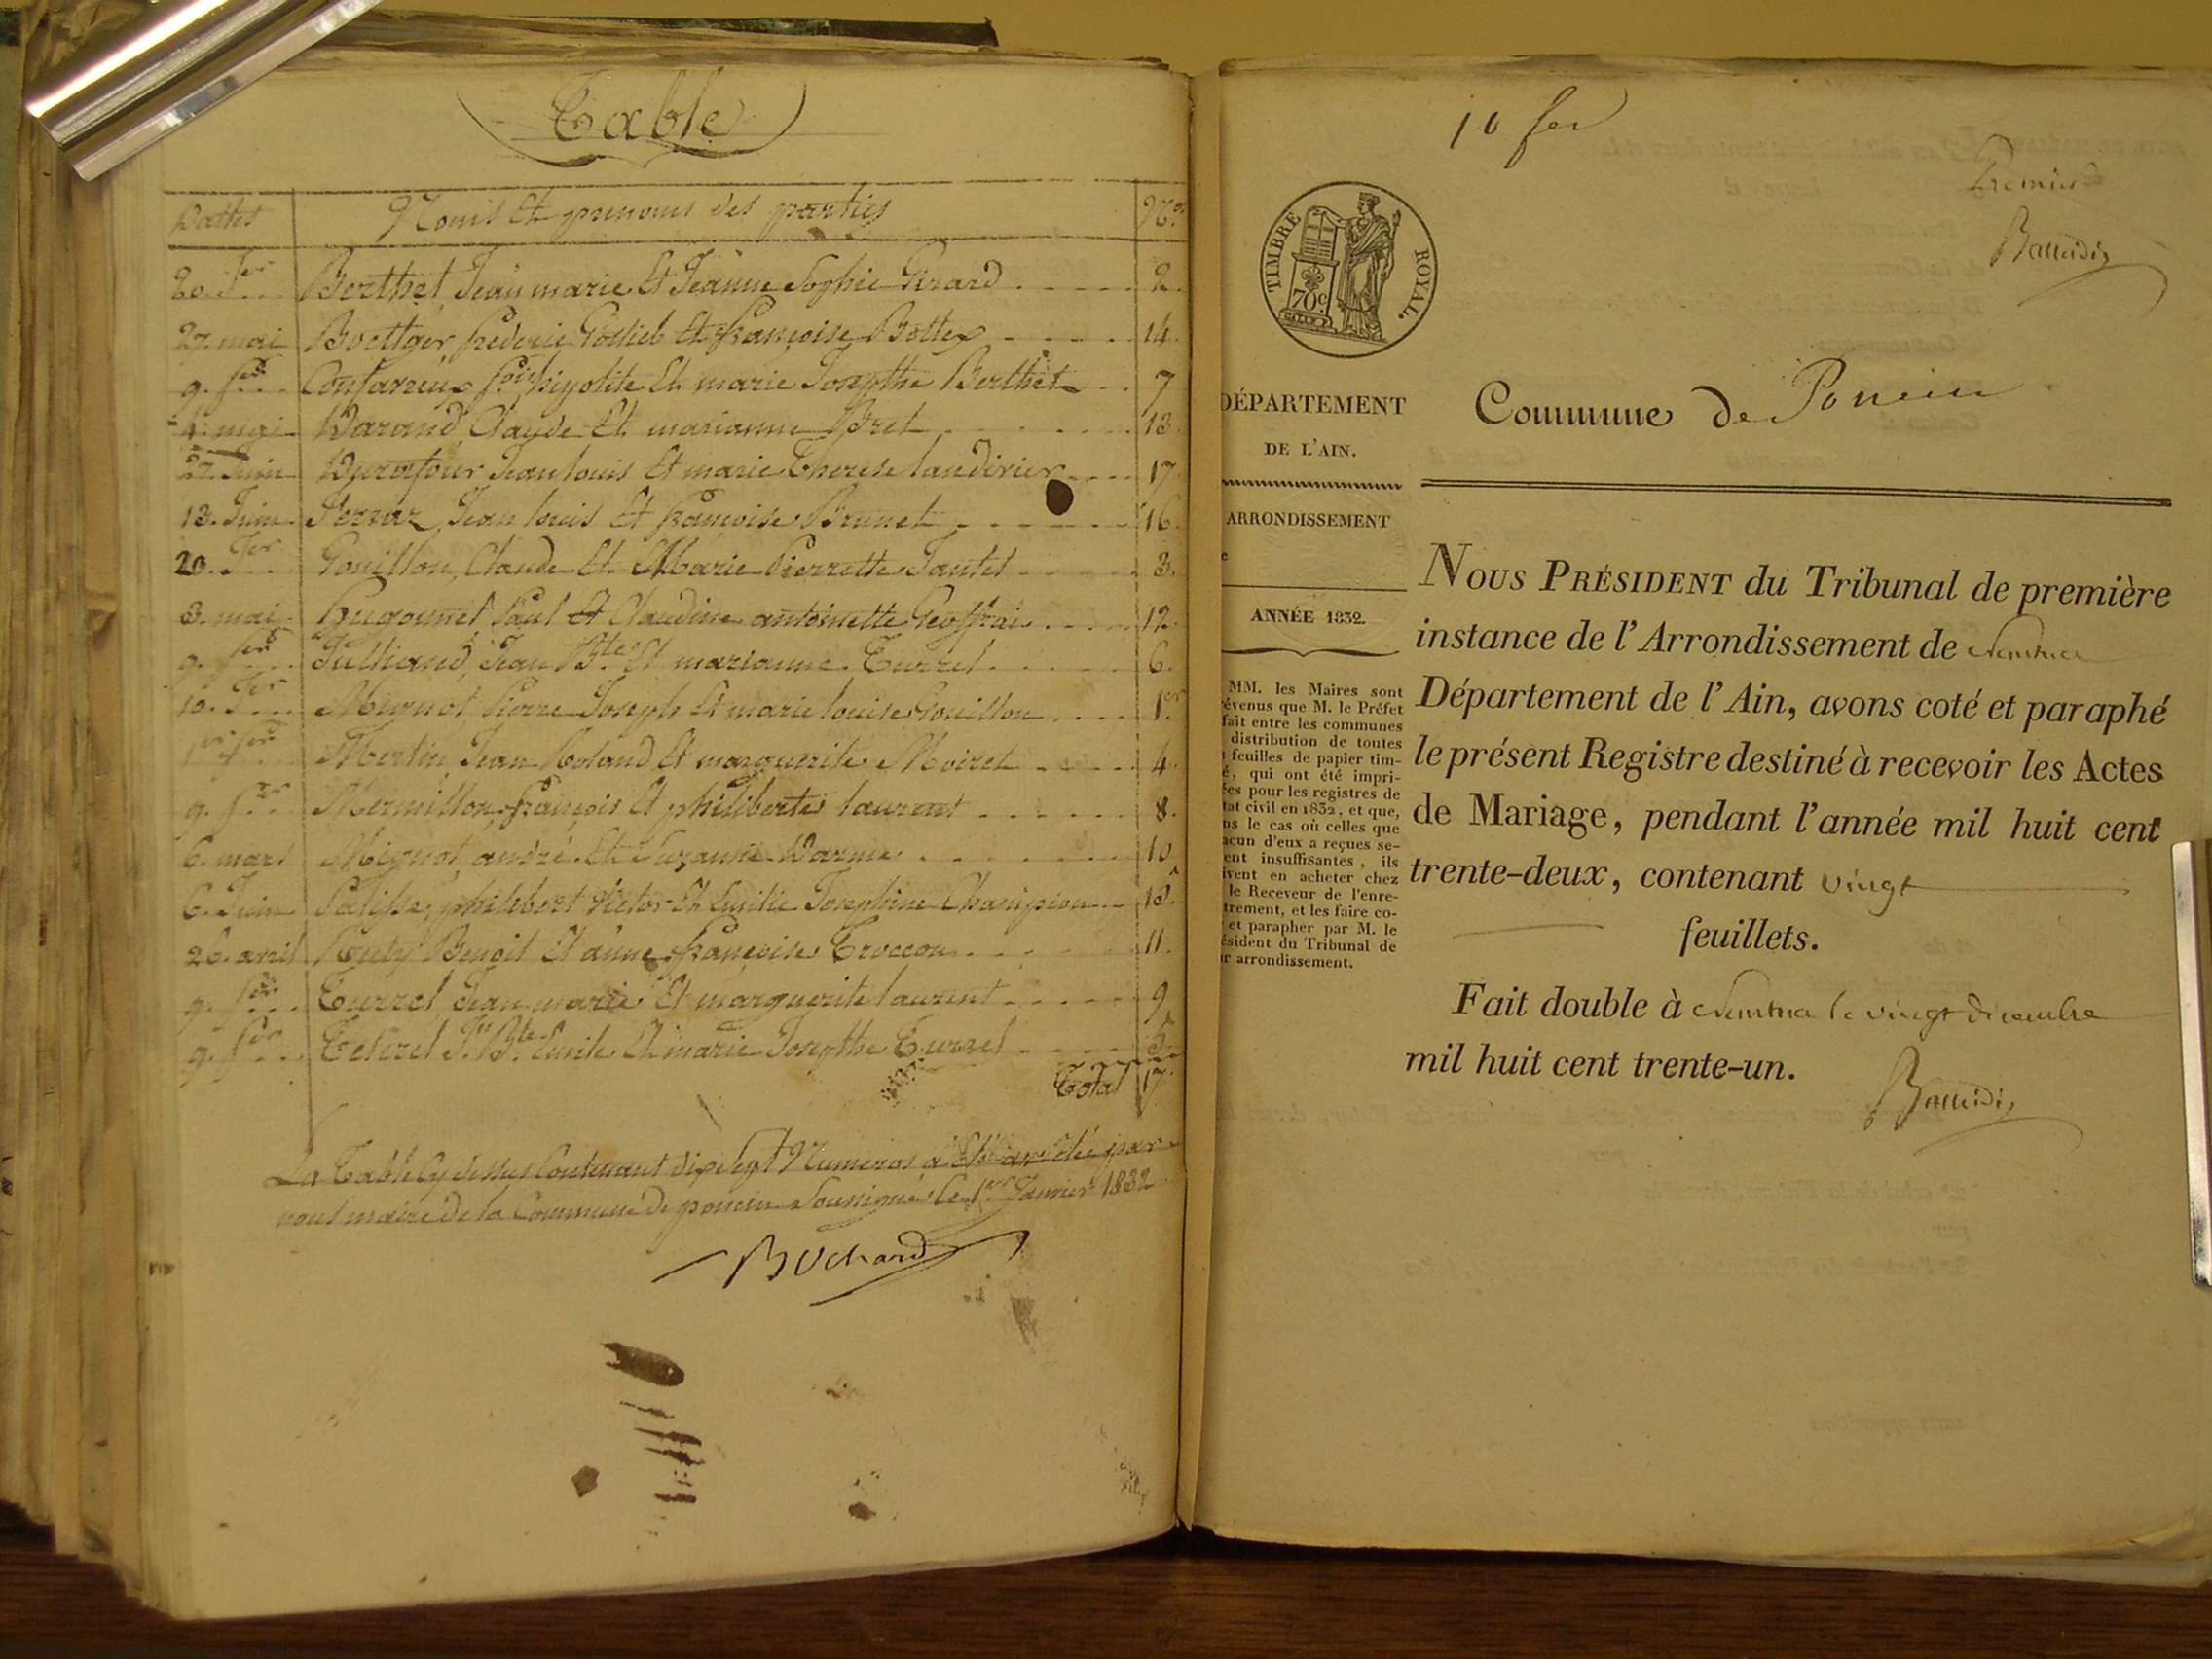 Table
Dattes Noms et prenoms des parties Nos
20. Jer Berthet Jean marie Et Jeanne Sophie Girard 2.
27. mai Boettger frederic Gotlieb Et françoise Bottex 14.
9. fer hipolite Et marie Josepthe Berthet 7
4. mai Darand Claude Et marianne Bret 13.
27. Juin Durafour Jean louis Et marie Therese landirier 17.
13. Juin Ferraz Jean louis Et françoise Brunet 16.
20. Jer Gouillon, Claude Et Marie Pierrette Tantet 3.
3. mai Hugonnet Paul Et Claudine antoinette Geoffrai 12.
9. fer Julliand, Jean Bte Et marianne Turrel 6.
10. Jer Mignot Pierre Joseph Et marie louise Gouillon 1er
1er fer Jean Et marguerite Moiret 4.
9. fer Mermillon françois Et philiberte laurent 8.
6. mars Mignot, andré Et Suzanne 10
6. Juin philibert Victor Et Emilie Josephine Champion 15.
26. avril Benoit Et anne françoise Troccon 11.
9. fer Turrel, Jean marie Et marguerite laurent 9
9. fer Jn Bte Emile Et marie Josepthe Turrel 5.
Total 17.
La Table Cy dessus Contenant dix Sept Numeros a Eté arrêtée par
nous maire de la Commune de poncin Soussigné le 1er Janvier 1832
Bochard
10 fer
Premier
TIMBRE ROYAL.
70c
DÉPARTEMENT
DE L'AIN.
Commune de Poncin
ARRONDISSEMENT
e
ANNÉE 1832.
MM. les Maires sont
évenus que M. le Préfet
fait entre les communes
distribution de toutes
feuilles de papier tim-
é, qui ont été impri-
ées pour les registres de
tat civil en 1832, et que,
ns le cas où celles que
acun d'eux a reçues se-
ent insuffisantes, ils
ivent en acheter chez
le Receveur de l'enre-
trement, et les faire co-
et parapher par M. le
ésident du Tribunal de
r arrondissement.
NOUS PRÉSIDENT du Tribunal de première
instance de l'Arrondissement de Nantua
Département de l'Ain, avons coté et paraphé
le présent Registre destiné à recevoir les Actes
de Mariage, pendant l'année mil huit cent
trente-deux, contenant vingt
feuillets.
Fait double à Nantua le vingt décembre
mil huit cent trente-un.